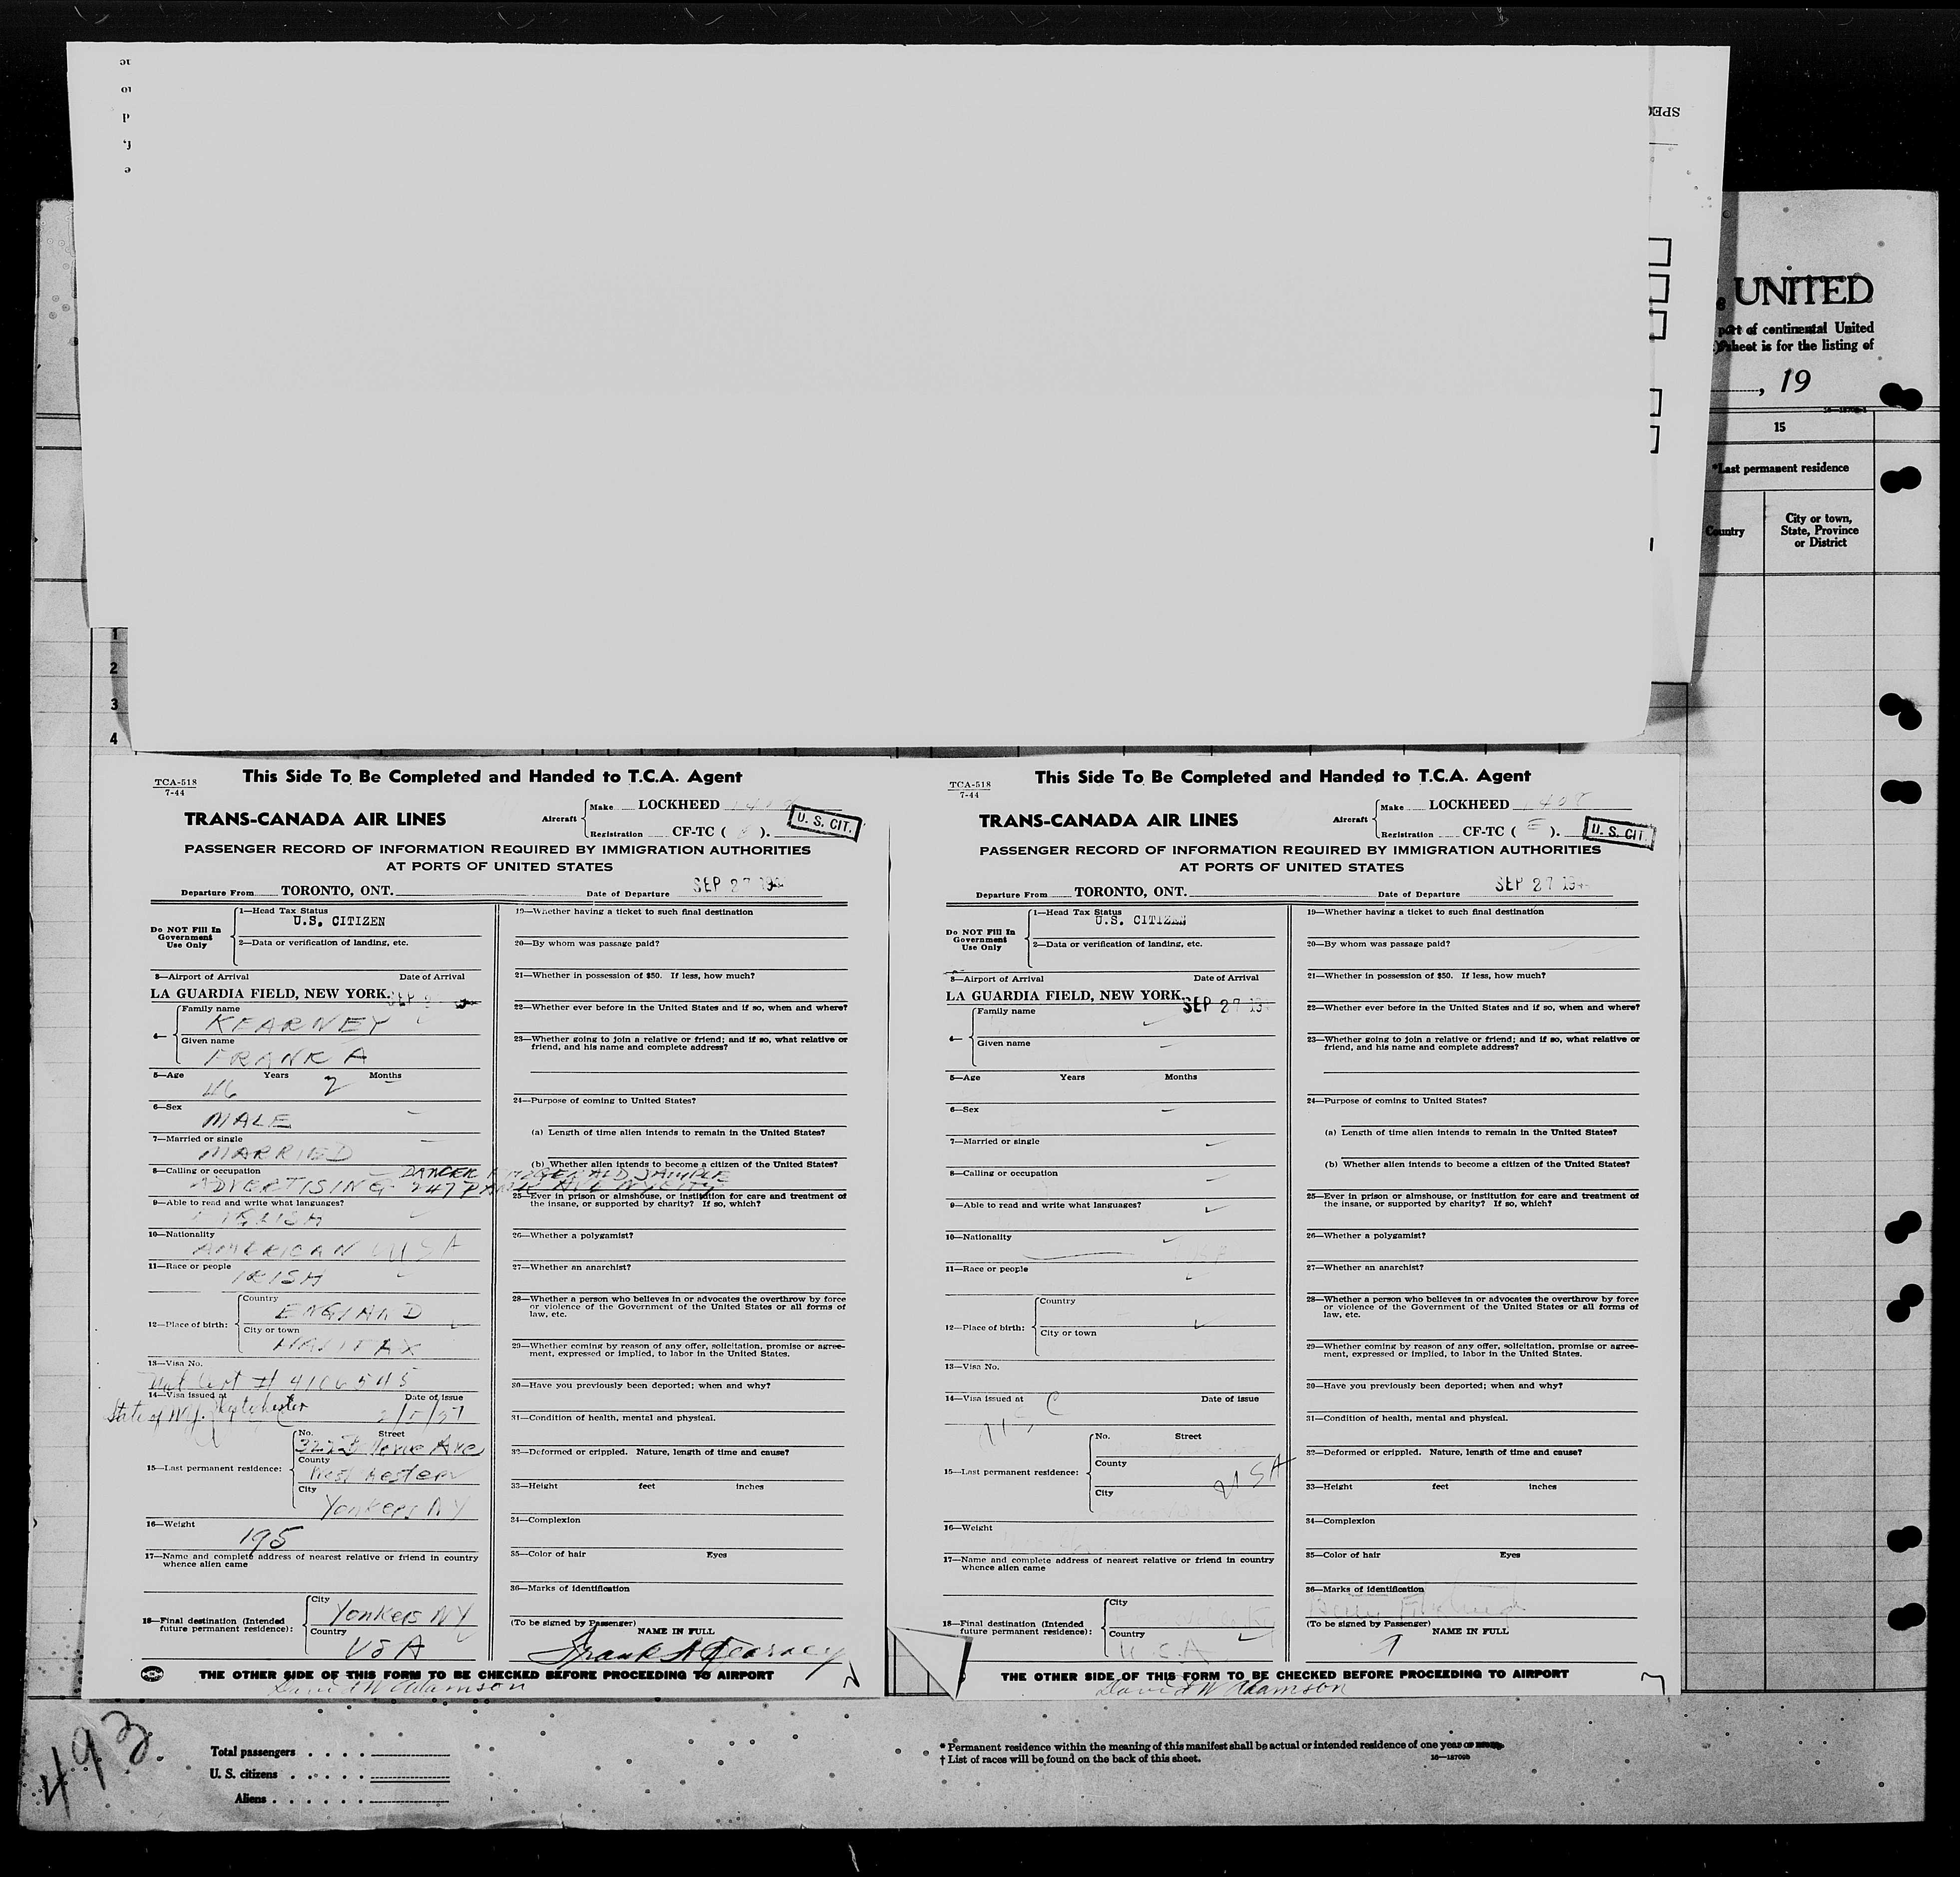 SPEC
UNITED
part of continental United
sheet is for the listing of
, 19
15
*Last permanent residence
Country
City or town,
State, Province
or District
1
2
3
4
TCA-518
7-44
This Side To Be Completed and Handed to T.C.A. Agent
TRANS-CANADA AIR LINES
Aircraft
Make LOCKHEED
Registration CF-TC ( ).
U. S. CIT.
PASSENGER RECORD OF INFORMATION REQUIRED BY IMMIGRATION AUTHORITIES
AT PORTS OF UNITED STATES
Departure From TORONTO, ONT. Date of Departure SEP 27 194
Do NOT Fill In
Government
Use Only
1—Head Tax Status
U.S. CITIZEN
2—Data or verification of landing, etc.
3—Airport of Arrival Date of Arrival
LA GUARDIA FIELD, NEW YORK. SEP 2
4— Family name
KEARNEY
Given name
FRANK A
5—Age Years Months
46 2
6—Sex
MALE
7—Married or single
MARRIED
8—Calling or occupation
DANCER FITZGERALD SAMPLE
ADVERTISING 247 PARK AVE NY CITY
9—Able to read and write what languages?
10—Nationality
AMERICAN USA
11—Race or people
IRISH
12—Place of birth:
Country
ENGLAND
City or town
HALIFAX
13—Visa No.
Nat Cert # 4106545
14—Visa issued at Date of issue
State of N.Y. Westchester
15—Last permanent residence:
No. Street
Ave
County
Westchester
City
Yonkers NY
16—Weight
195
17—Name and complete address of nearest relative or friend in country
whence alien came
18—Final destination (Intended
future permanent residence):
City
Yonkers NY
Country
USA
19—Whether having a ticket to such final destination
20—By whom was passage paid?
21—Whether in possession of $50. If less, how much?
22—Whether ever before in the United States and if so, when and where?
23—Whether going to join a relative or friend; and if so, what relative or
friend, and his name and complete address?
24—Purpose of coming to United States?
(a) Length of time alien intends to remain in the United States?
(b) Whether alien intends to become a citizen of the United States?
25—Ever in prison or almshouse, or institution for care and treatment of
the insane, or supported by charity? If so, which?
26—Whether a polygamist?
27—Whether an anarchist?
28—Whether a person who believes in or advocates the overthrow by force
or violence of the Government of the United States or all forms of
law, etc.
29—Whether coming by reason of any offer, solicitation, promise or agree-
ment, expressed or implied, to labor in the United States.
30—Have you previously been deported; when and why?
31—Condition of health, mental and physical.
32—Deformed or crippled. Nature, length of time and cause?
33—Height feet inches
34—Complexion
35—Color of hair Eyes
36—Marks of identification
(To be signed by Passenger)
NAME IN FULL
Frank A Kearney
THE OTHER SIDE OF THIS FORM TO BE CHECKED BEFORE PROCEEDING TO AIRPORT
David W Adamson
TCA-518
7-44
This Side To Be Completed and Handed to T.C.A. Agent
TRANS-CANADA AIR LINES
Aircraft
Make LOCKHEED 1408
Registration CF-TC ( E ).
U. S. CIT.
PASSENGER RECORD OF INFORMATION REQUIRED BY IMMIGRATION AUTHORITIES
AT PORTS OF UNITED STATES
Departure From TORONTO, ONT. Date of Departure SEP 27 194
Do NOT Fill In
Government
Use Only
1—Head Tax Status
U.S. CITIZEN
2—Data or verification of landing, etc.
3—Airport of Arrival Date of Arrival
LA GUARDIA FIELD, NEW YORK. SEP 27 19
4— Family name
Given name
5—Age Years Months
6—Sex
7—Married or single
8—Calling or occupation
9—Able to read and write what languages?
10—Nationality
11—Race or people
12—Place of birth:
Country
City or town
13—Visa No.
14—Visa issued at Date of issue
U S C
15—Last permanent residence:
No. Street
County
City
USA
16—Weight
17—Name and complete address of nearest relative or friend in country
whence alien came
18—Final destination (Intended
future permanent residence):
City
Country
U.S.A
19—Whether having a ticket to such final destination
20—By whom was passage paid?
21—Whether in possession of $50. If less, how much?
22—Whether ever before in the United States and if so, when and where?
23—Whether going to join a relative or friend; and if so, what relative or
friend, and his name and complete address?
24—Purpose of coming to United States?
(a) Length of time alien intends to remain in the United States?
(b) Whether alien intends to become a citizen of the United States?
25—Ever in prison or almshouse, or institution for care and treatment of
the insane, or supported by charity? If so, which?
26—Whether a polygamist?
27—Whether an anarchist?
28—Whether a person who believes in or advocates the overthrow by force
or violence of the Government of the United States or all forms of
law, etc.
29—Whether coming by reason of any offer, solicitation, promise or agree-
ment, expressed or implied, to labor in the United States.
30—Have you previously been deported; when and why?
31—Condition of health, mental and physical.
32—Deformed or crippled. Nature, length of time and cause?
33—Height feet inches
34—Complexion
35—Color of hair Eyes
36—Marks of identification
(To be signed by Passenger)
NAME IN FULL
THE OTHER SIDE OF THIS FORM TO BE CHECKED BEFORE PROCEEDING TO AIRPORT
David W Adamson
493.
Total passengers
U. S. citizens
Aliens
* Permanent residence within the meaning of this manifest shall be actual or intended residence of one year or more.
† List of races will be found on the back of this sheet.